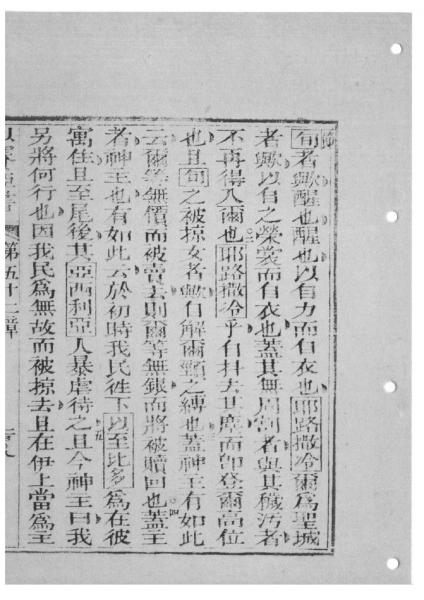 旬者歟醒也醒也以自力而自衣也耶路撒冷爾爲聖城
者歟以自之榮裳而自衣也蓋其無周割者與其穢汚者
不再得入爾也耶路撒冷乎自抖去其塵而卽登爾高位
也且旬之被掠女者歟自解爾頸之縛也蓋神主有如此
云爾等無價而被賣去則爾等無銀而將被贖回也蓋主
者神主也有如此云於初時我民徃下以至比多爲在彼
寓住且至尾後其亞西利亞人暴虐待之且今神主曰我
另將何行也因我民爲無故而被掠去且在伊上當爲主
以賽亞書 第五十二章